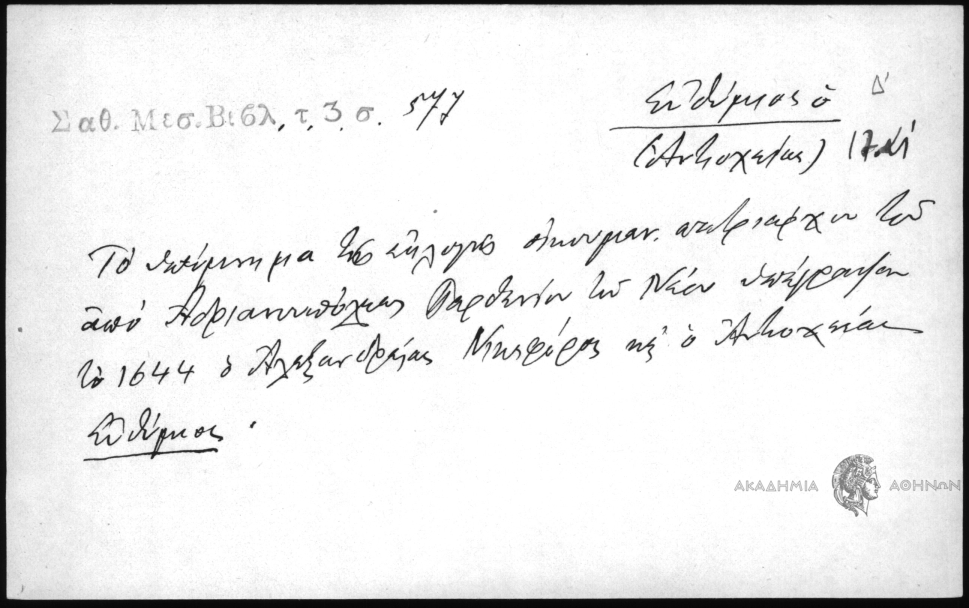 Σαθ. Μεσ. Βιβλ. τ. 3. σ. 577
Εὐθύμιος ὁ Δ'
(Ἀντιοχείας)
Τὸ ὑπόμνημα τῆς ἐκλογῆς οἰκουμεν. πατριάρχου τοῦ
ἀπὸ Ἀδριανουπόλεως Παρθενίου τοῦ Νέου ὑπέγραψαν
τὸ 1644 ὁ Ἀλεξανδρείας Νικηφόρος κὲ ὁ Ἀντιοχείας
Εὐθύμιος.
ΑΚΑΔΗΜΙΑ ΑΘΗΝΩΝ